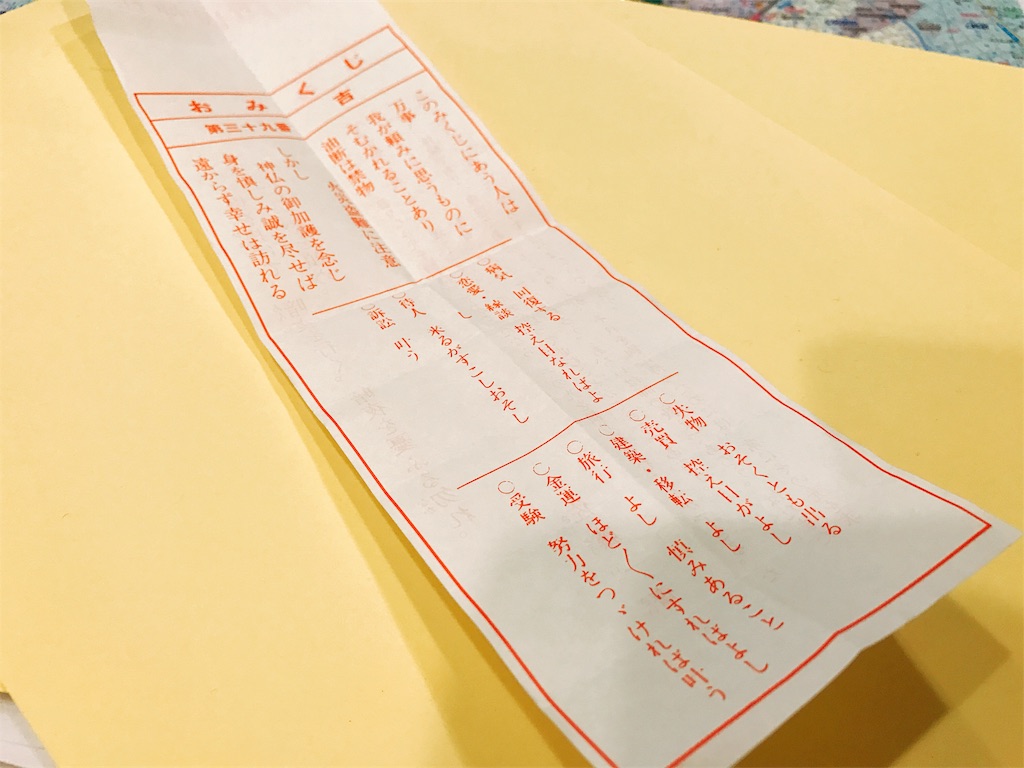 おみくじ
吉
第三十九番
このみくじにあう人は
万事
我が頼みに思うものに
そむかれることあり
油断は禁物
に注意
しかし
神仏の御加護を念じ
身を慎しみ誠を尽せば
遠からず幸せは訪れる
○病気 回復する
○恋愛・縁談 控え目なればよ
し
○待人 来るがすこしおそし
○訴訟 叶う
○失物 おそくとも出る
○売買 控え目がよし
○建築・移転 よし
○旅行 よし 慎みあること
○金運 ほど〱にすればよし
○受験 努力をつゞければ叶う